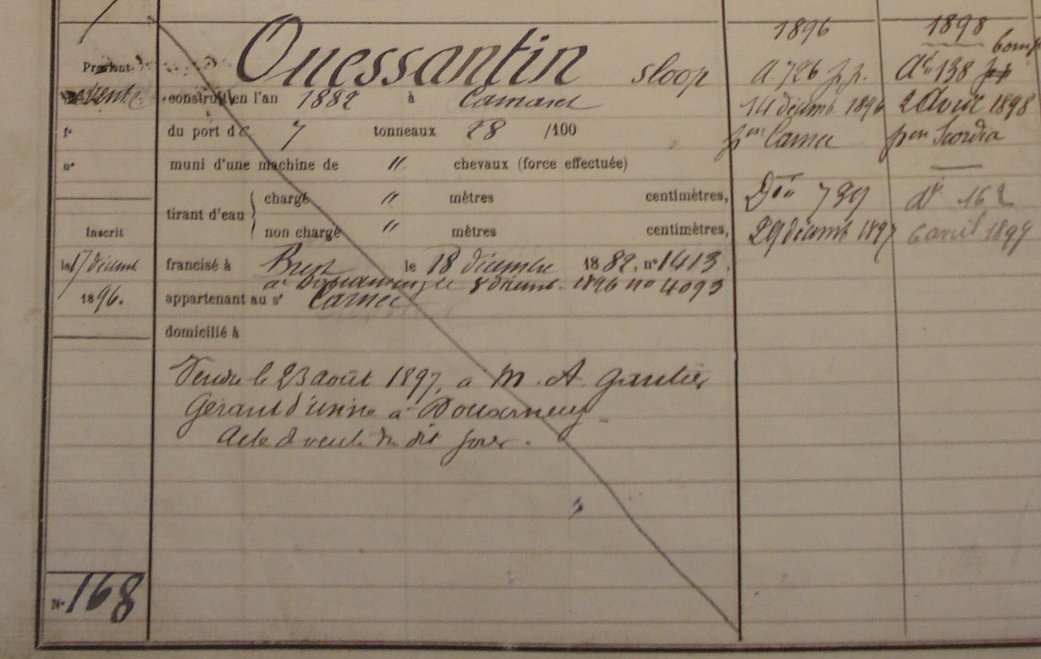 Ouessantin sloop
Provenant
vente
construit en l'an 1882 à Camaret
fº
du port de 7 tonneaux 28 /100
nº
muni d'une machine de " chevaux (force effectuée)
tirant d'eau
chargé " mètres centimètres,
non chargé " mètres centimètres,
Inscrit
le 17 décemb
1896.
francisé à Brest le 18 décembre 1882, nº 1413.
à Douarnenez le 8 décemb. 1896 nº 4093
appartenant au sr Carnec
domicilié à
Vendu le 23 août 1897, à M. A. Gautier
Gérant d'usine à Douarnenez
Acte de vente du dit jour.
Nº 168
1896
A. 726 f. f.
14 décemb 1896
pon Carnec
Don 739
29 décemb 1897
1898
Ac. 138
2 Avril 1898
pon Scordia
do 162
6 avril 1899